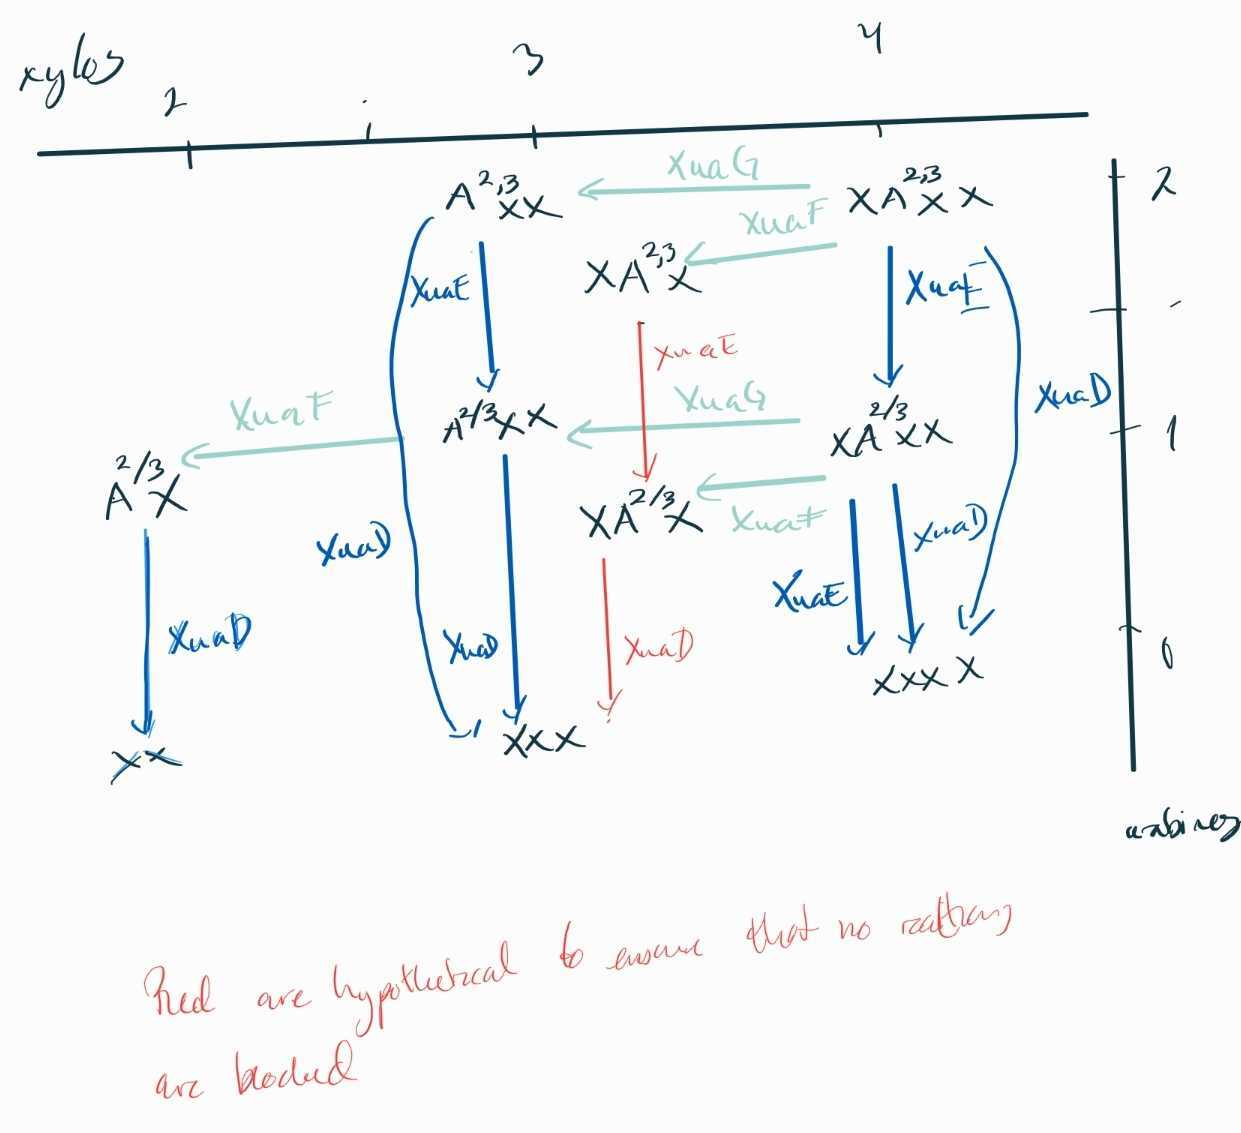 xylos
2
3
4
A²,³XX
XuaG
XA²,³XX
2
XuaF
XA²,³X
XuaE
XuaE
XuaE
XuaD
XuaF
A²/³XX
XuaG
XA²/³XX
1
A²/³X
XA²/³X
XuaF
XuaD
XuaD
XuaD
XuaD
XuaD
XuaE
XXXX
0
XX
XXX
Red are hypothetical to ensure that no
are blocked